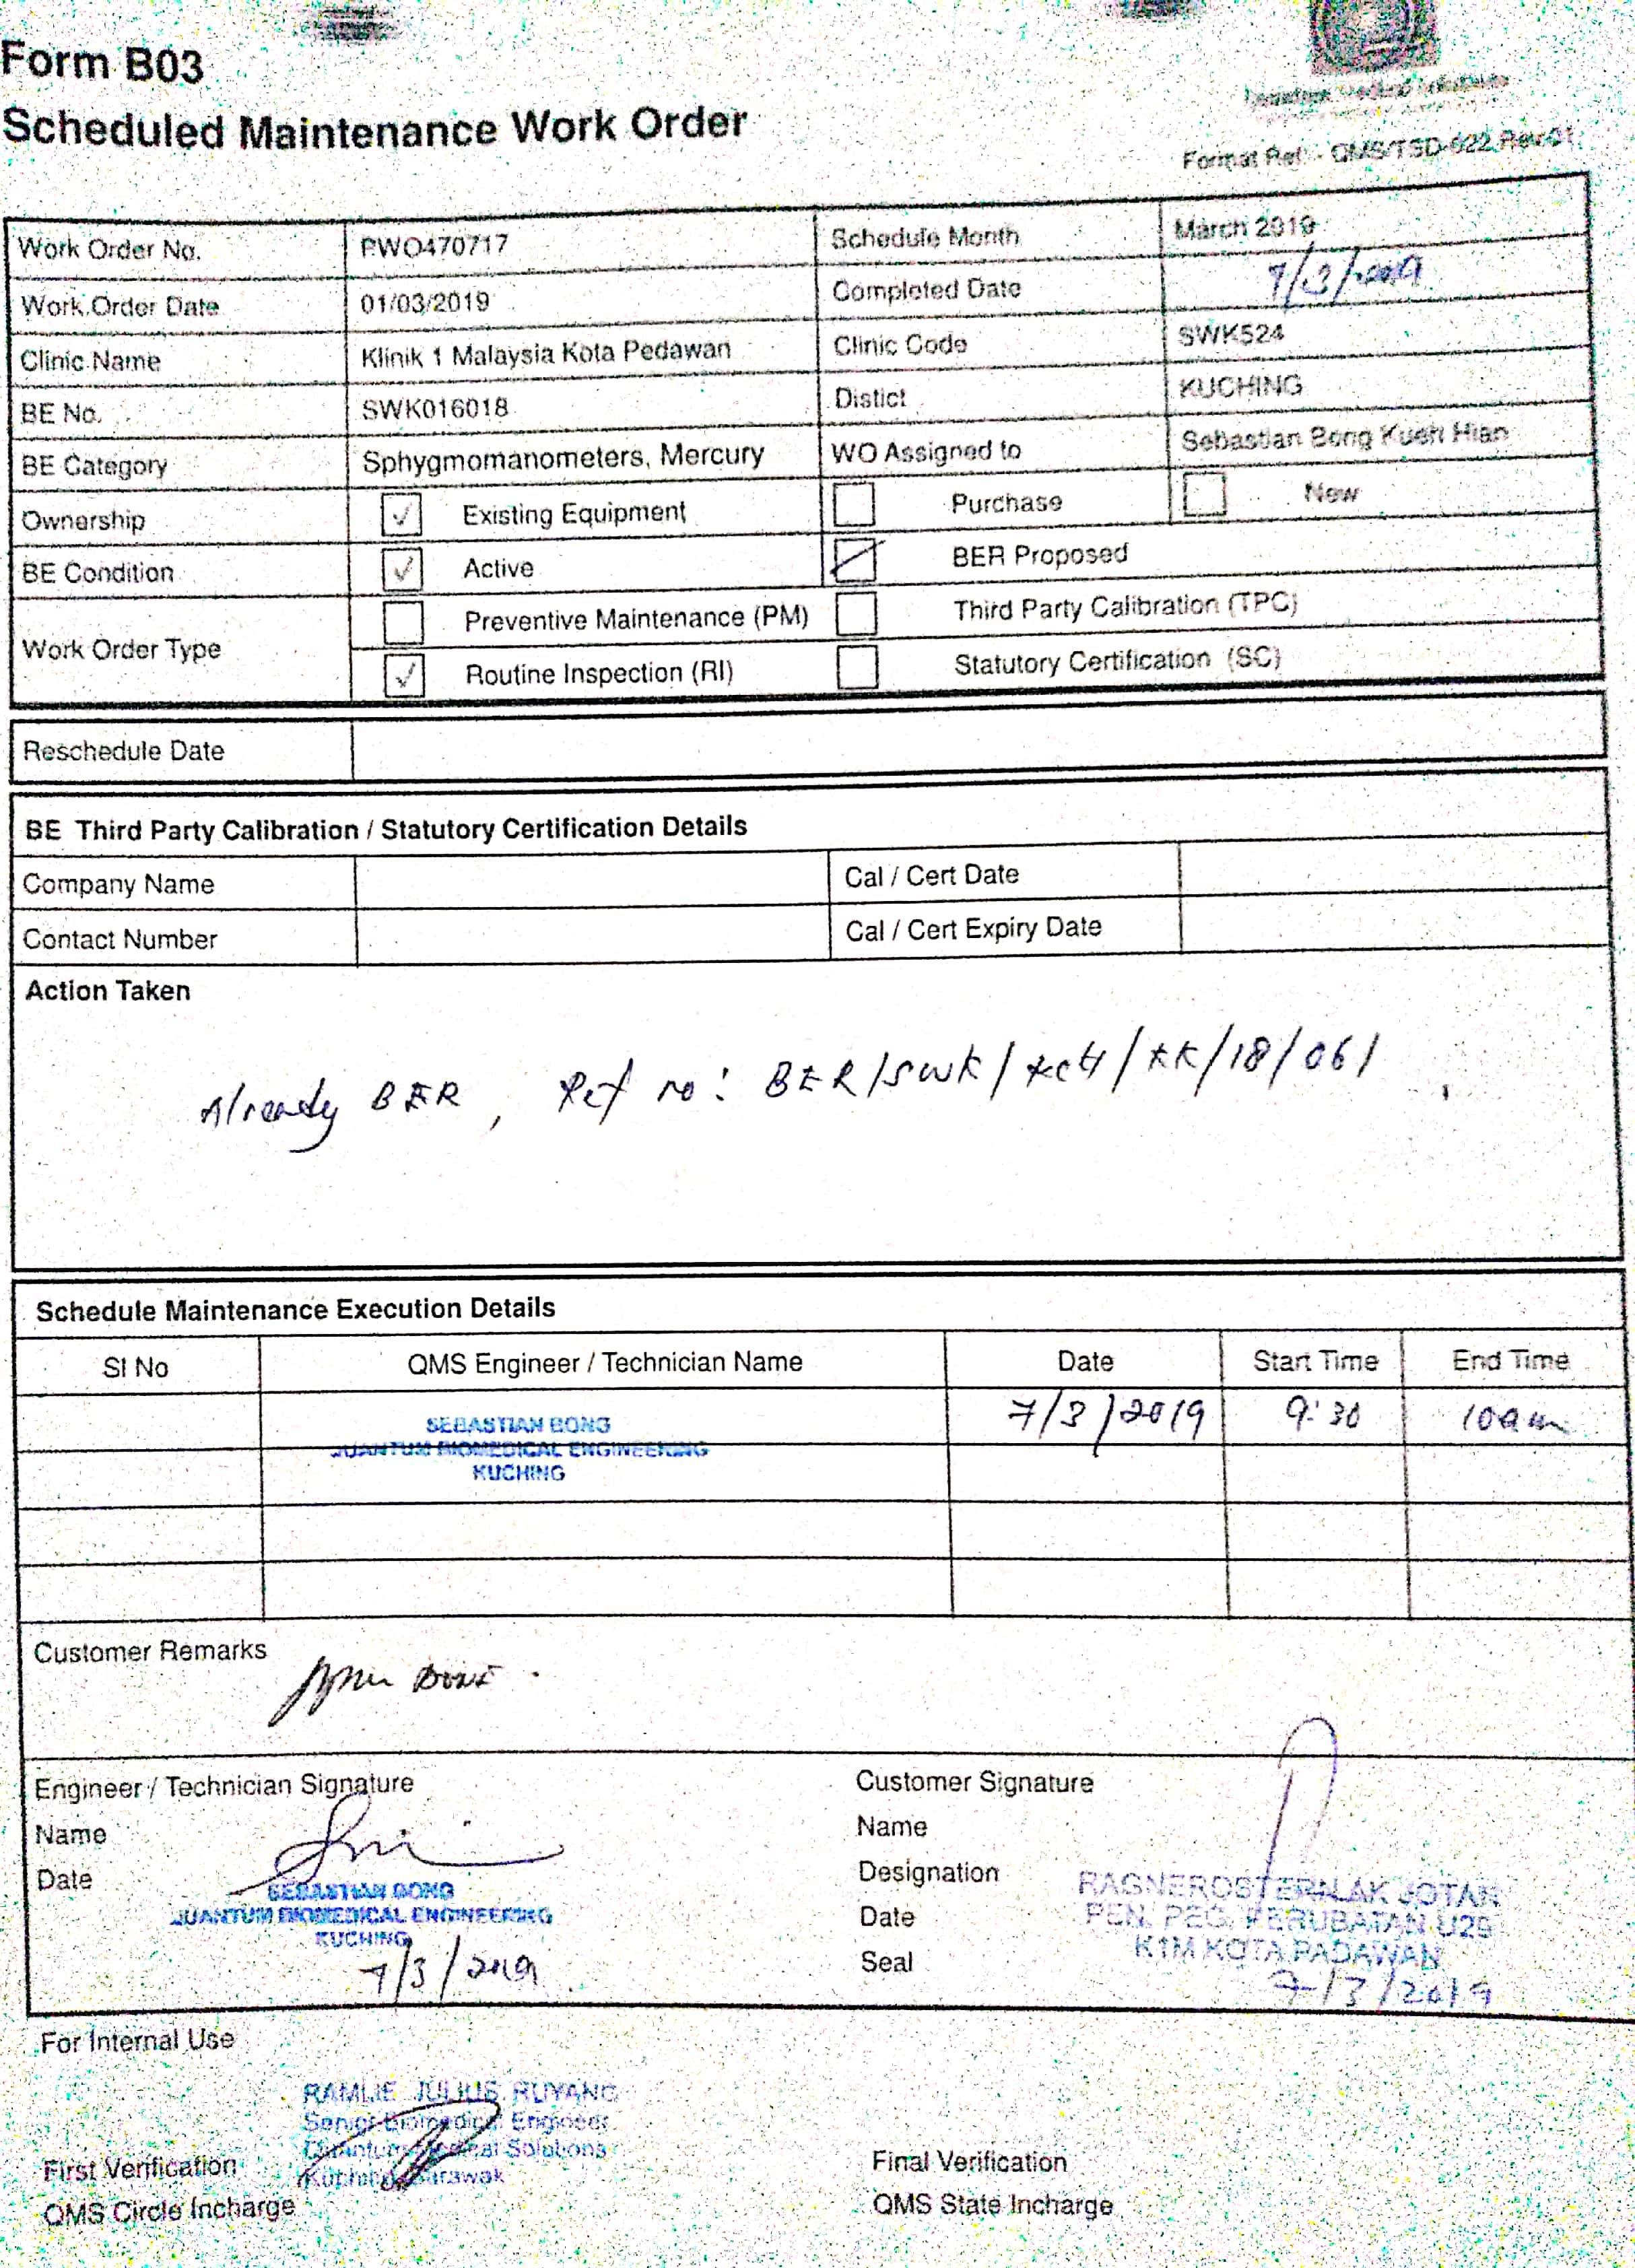 Form B03
Scheduled Maintenance Work Order
Format Ref - QMS/TSD-622 Rev-01
Work Order No. PWO470717 Schedule Month March 2019
Work Order Date 01/03/2019 Completed Date 7/3/2019
Clinic Name Klinik 1 Malaysia Kota Pedawan Clinic Code SWK524
BE No. SWK016018 Distict KUCHING
BE Category Sphygmomanometers, Mercury WO Assigned to Sebastian Bong Kueh Hian
Ownership ✓ Existing Equipment Purchase New
BE Condition ✓ Active BER Proposed
Work Order Type
Preventive Maintenance (PM) Third Party Calibration (TPC)
✓ Routine Inspection (RI) Statutory Certification (SC)
Reschedule Date
BE Third Party Calibration / Statutory Certification Details
Company Name Cal / Cert Date
Contact Number Cal / Cert Expiry Date
Action Taken
Already BER, Ref no: BER/SWK/KCH/KK/18/061
Schedule Maintenance Execution Details
SI No QMS Engineer / Technician Name Date Start Time End Time
SEBASTIAN BONG 7/3/2019 9:30 10am
QUANTUM BIOMEDICAL ENGINEERING
KUCHING
Customer Remarks
DONE
Engineer / Technician Signature Customer Signature
Name Name
Date Designation
SEBASTIAN BONG
QUANTUM BIOMEDICAL ENGINEERING
KUCHING
7/3/2019
Date
Seal
JOTAN
PEN. PEG. PERUBATAN U29
K1M KOTA PADAWAN
7/3/2019
For Internal Use
RAMLIE JULIUS RUYANG
Senior Biomedical Engineer
Quantum Medical Solutions
Kuching Sarawak
First Verification Final Verification
QMS Circle Incharge QMS State Incharge